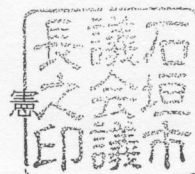 石垣市
議会議
長之印
憲